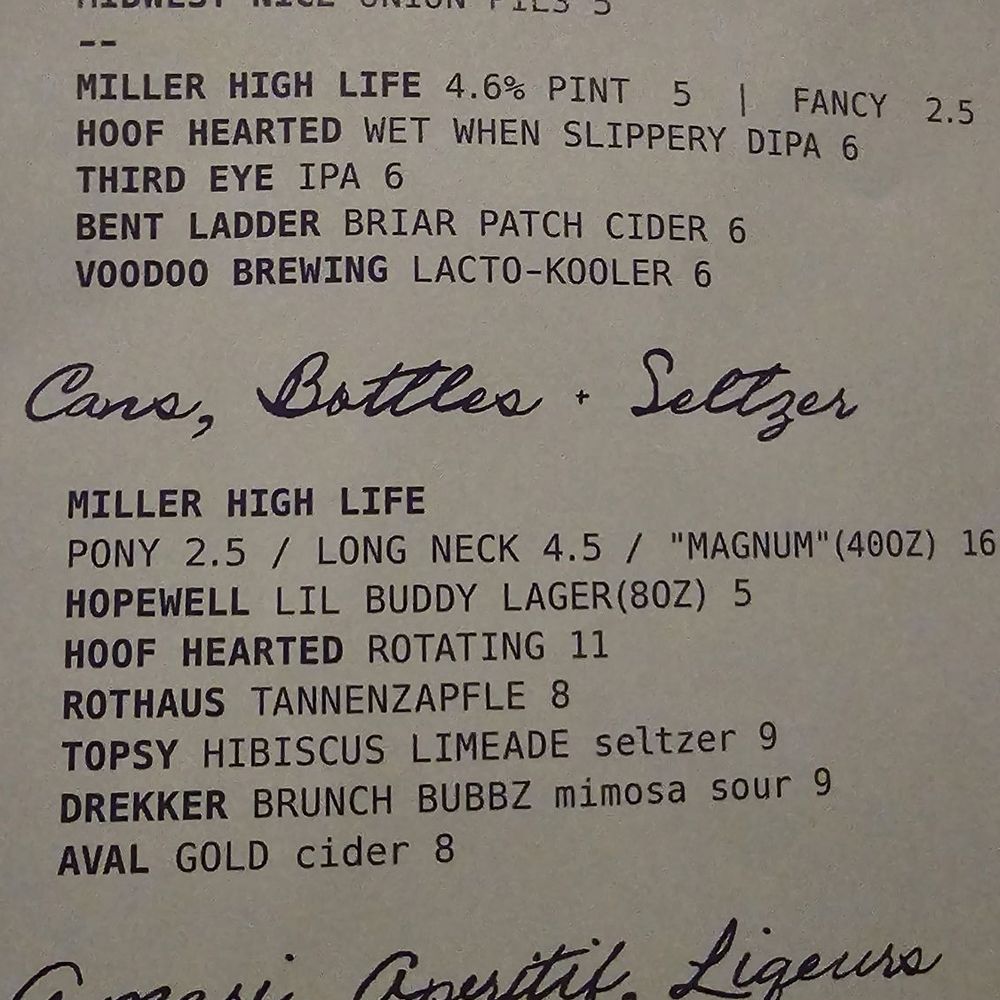 MIDWEST NICE UNION PILS 5
--
MILLER HIGH LIFE 4.6% PINT 5 | FANCY 2.5
HOOF HEARTED WET WHEN SLIPPERY DIPA 6
THIRD EYE IPA 6
BENT LADDER BRIAR PATCH CIDER 6
VOODOO BREWING LACTO-KOOLER 6
Cans, Bottles + Seltzer
MILLER HIGH LIFE
PONY 2.5 / LONG NECK 4.5 / "MAGNUM"(40OZ) 16
HOPEWELL LIL BUDDY LAGER(8OZ) 5
HOOF HEARTED ROTATING 11
ROTHAUS TANNENZAPFLE 8
TOPSY HIBISCUS LIMEADE seltzer 9
DREKKER BRUNCH BUBBZ mimosa sour 9
AVAL GOLD cider 8
Amari, Aperitif, Liqeurs